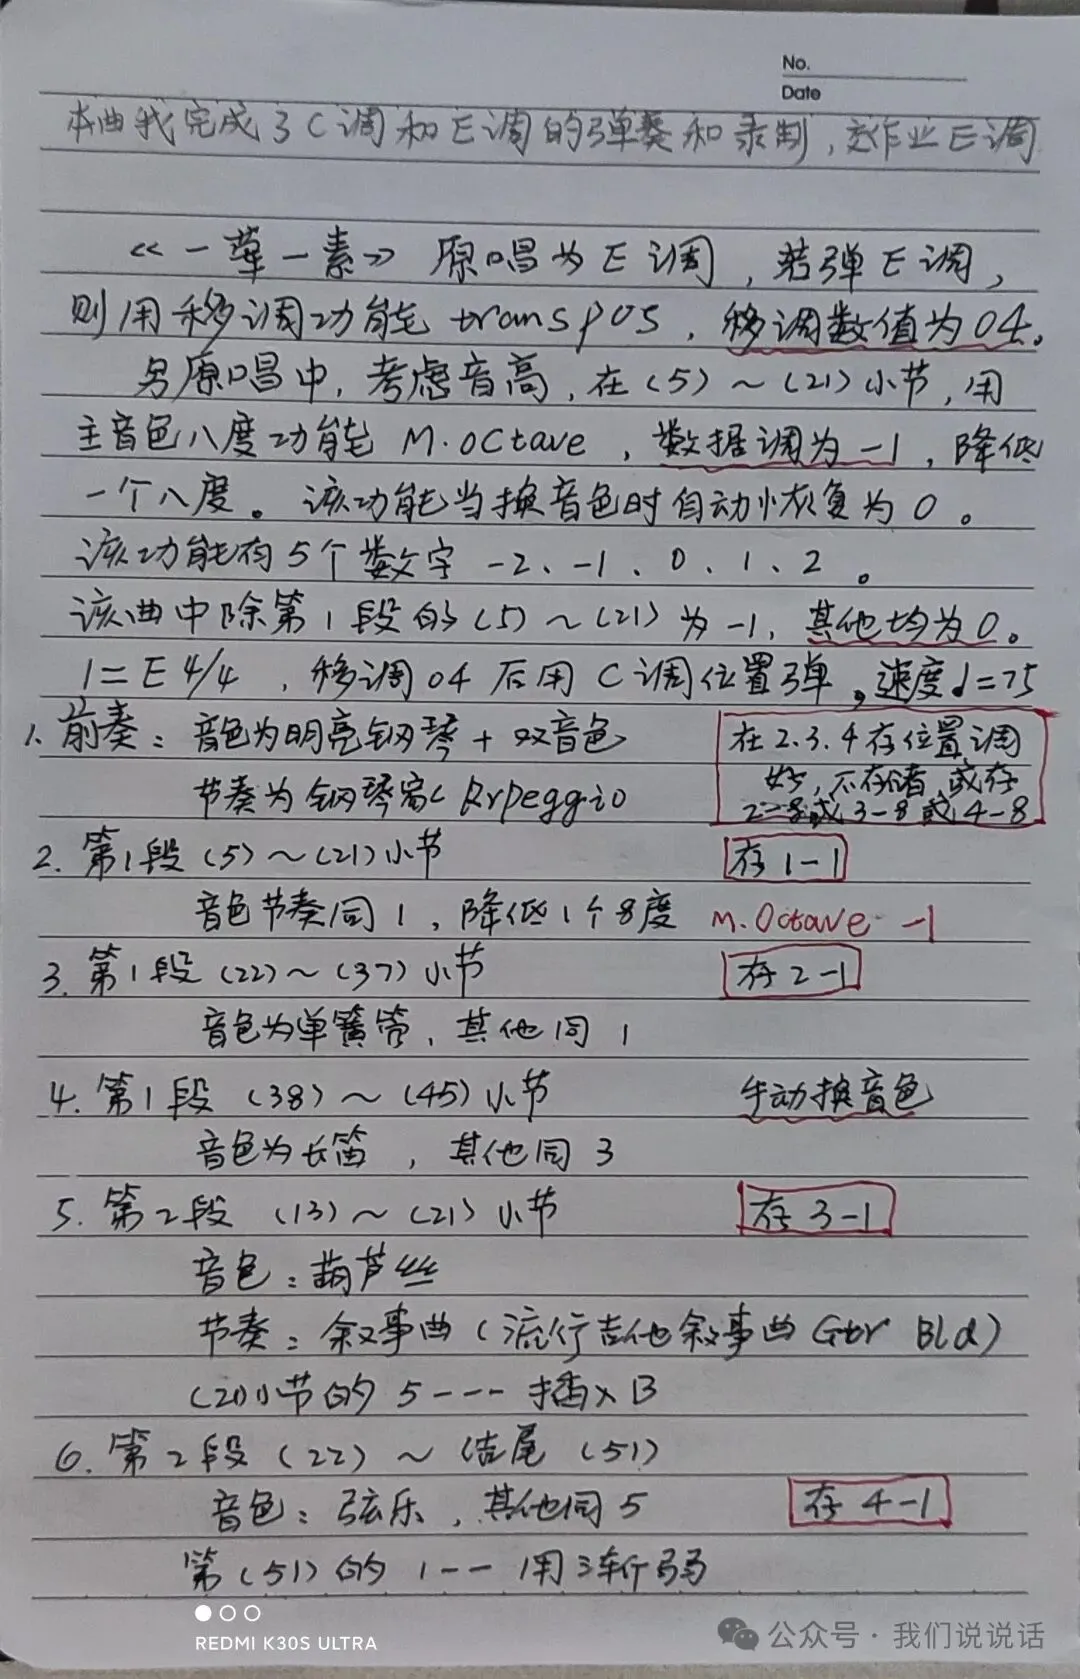 No.
Date
本曲我完成了C调和E调的弹奏和录制,交作业E调
《一荤一素》原唱为E调,若弹E调,
则用移调功能transpos,移调数值为04。
另原唱中,考虑音高,在(5)~(21)小节,用
主音色八度功能 M.Octave,数据调为-1,降低
一个八度。该功能当换音色时自动恢复为0。
该功能有5个数字 -2、-1、0、1、2。
该曲中除第1段的(5)~(21)为-1,其他均为0。
1=E 4/4,移调04后用C调位置弹。速度♩=75
1. 前奏:音色为明亮钢琴+双音色
在2.3.4存位置调
好,不存储,或存
节奏为钢琴 Arpeggio
或3-8或4-8
2. 第1段(5)~(21)小节 存1-1
音色节奏同1,降低1个8度 M.Octave -1
3. 第1段(22)~(37)小节 存2-1
音色为单簧管,其他同1
4. 第1段(38)~(45)小节 手动换音色
音色为长笛,其他同3
5. 第2段(13)~(21)小节 存3-1
音色:葫芦丝
节奏:叙事曲(流行吉他叙事曲 Gtr Bld)
(21)小节的 5--- 插入B
6. 第2段(22)~结尾(51)
音色:弦乐,其他同5 存4-1
第(51)的 1--- 用渐弱
REDMI K30S ULTRA
公众号·我们说说话